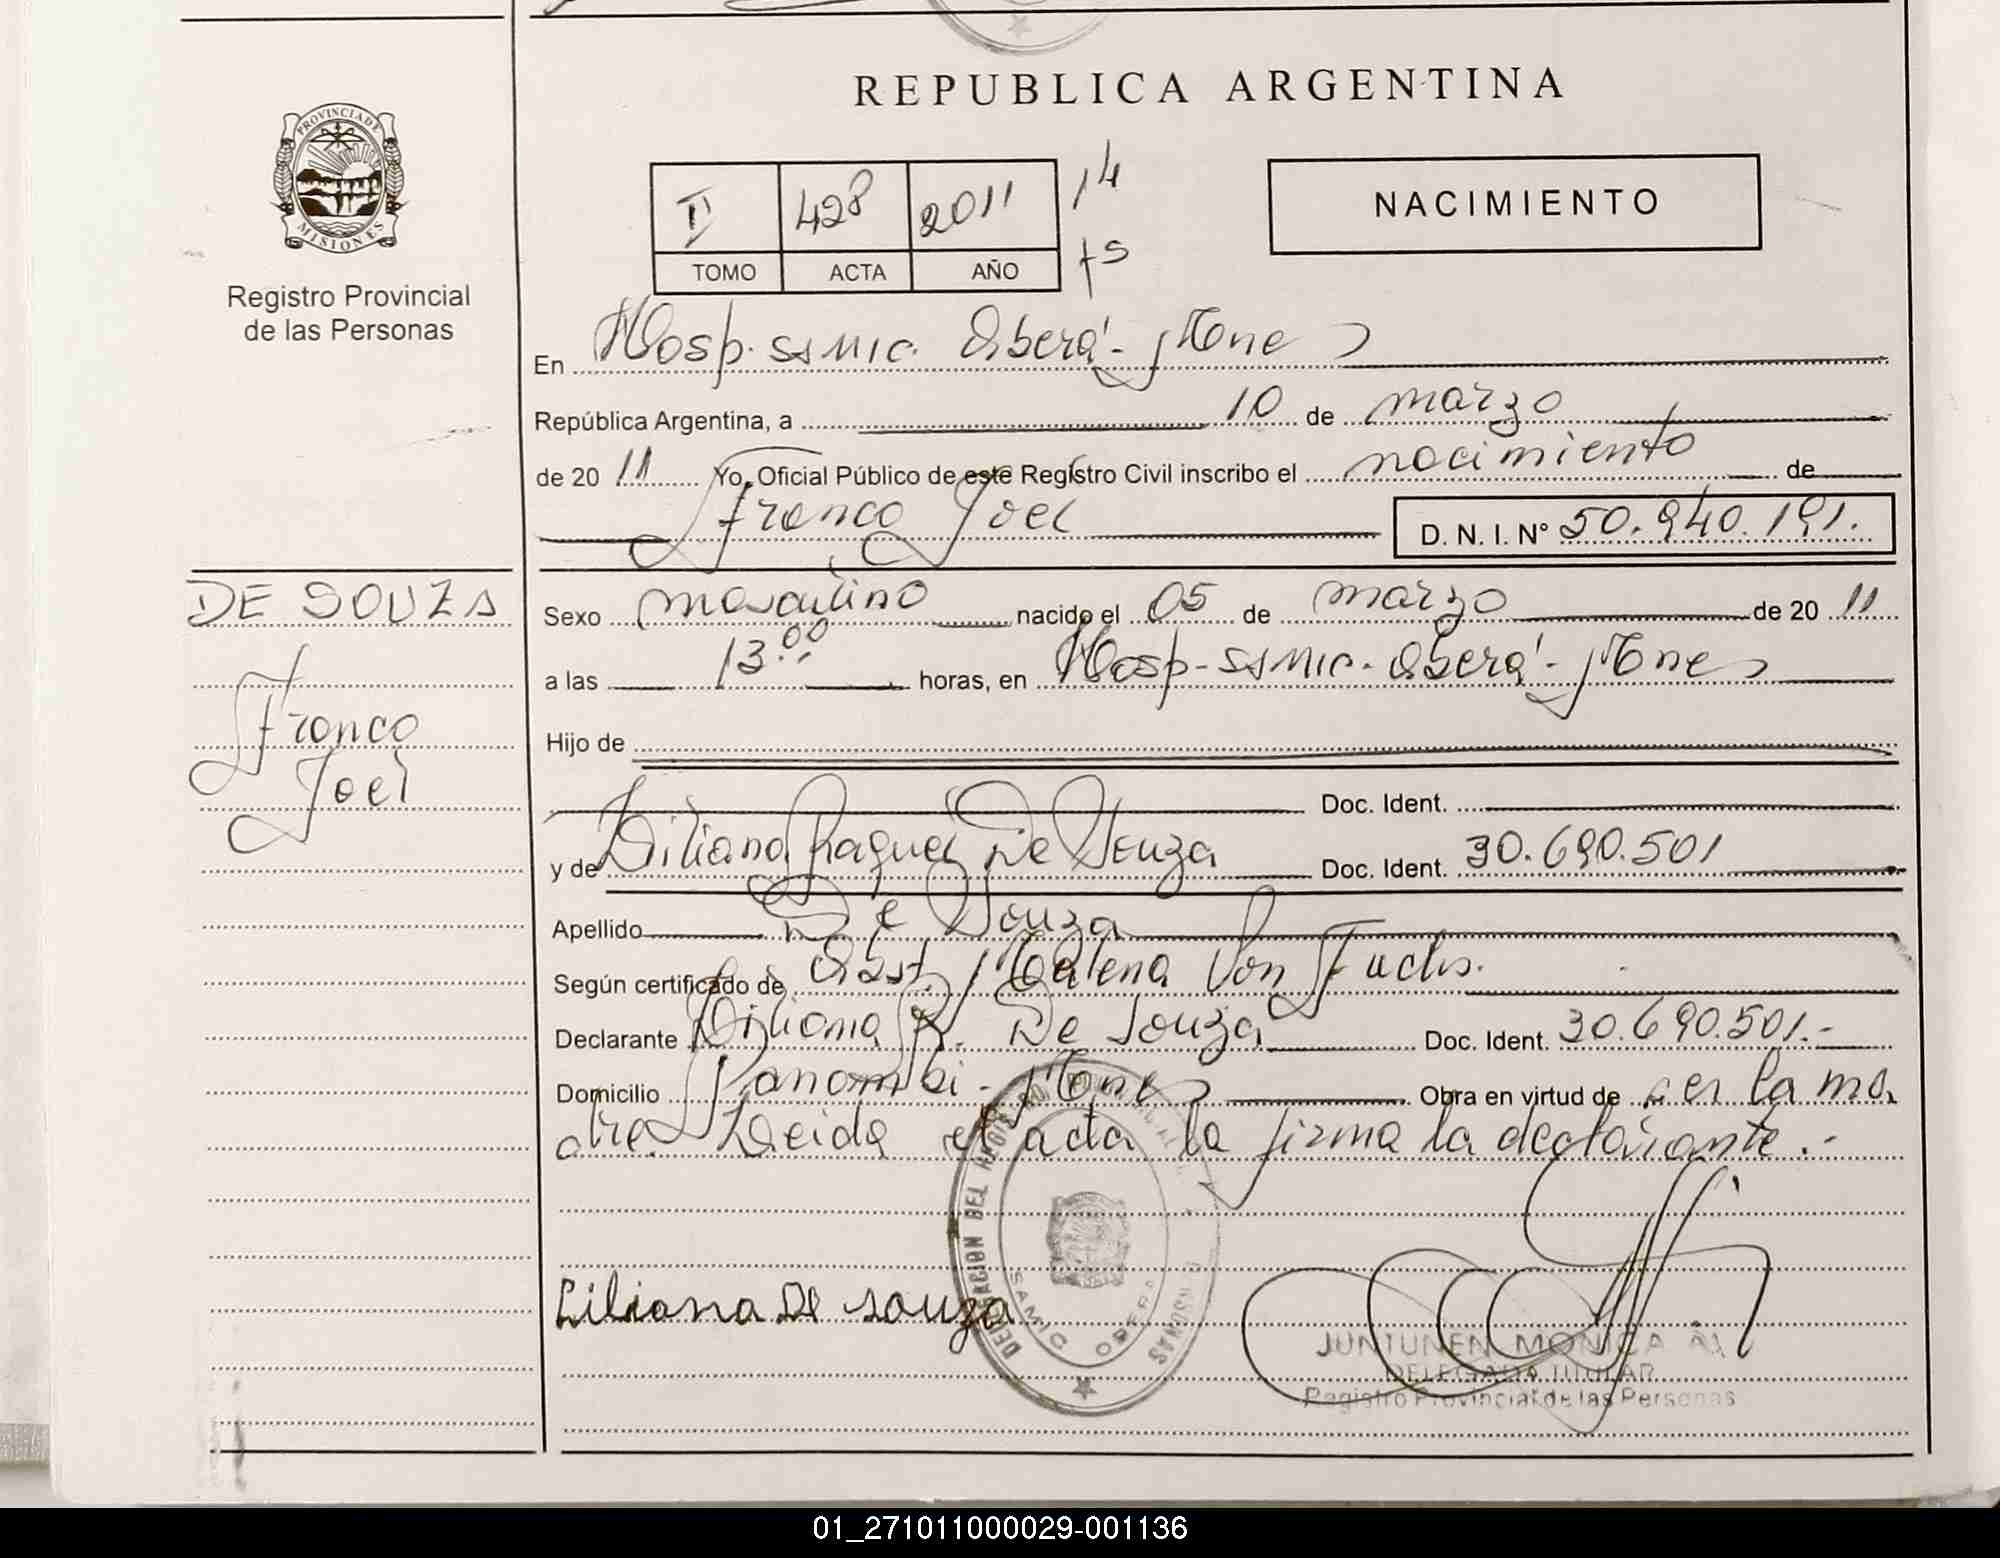 REPUBLICA ARGENTINA
PROVINCIA DE
MISIONES
Registro Provincial
de las Personas
II 428 2011 14
TOMO ACTA AÑO fs
NACIMIENTO
En Hosp. SAMIC. Oberá - Mnes
República Argentina, a 10 de marzo
de 20 11 Yo, Oficial Público de este Registro Civil inscribo el nacimiento de
Franco Joel D. N. I. N° 50.940.191.
DE SOUZA
Franco
Joel
Sexo masculino nacido el 05 de marzo de 20 11
a las 13:00 horas, en Hosp - SAMIC - Oberá - Mnes
Hijo de
Doc. Ident.
y de Liliana Raquel De Souza Doc. Ident. 30.690.501
Apellido De Souza
Según certificado de Obst. Malena Von Fuchs.
Declarante Liliana R. De Souza Doc. Ident. 30.690.501.-
Domicilio Panambi - Mnes Obra en virtud de ser la ma
dre. Leida el acta la firma la declarante.-
Liliana De souza
DELEGACION DEL REGISTRO PROVINCIAL PERSONAS
SAMIC OBERA
JUNTUNEN MONICA A.
DELEGADA TITULAR
Registro Provincial de las Personas
01_271011000029-001136